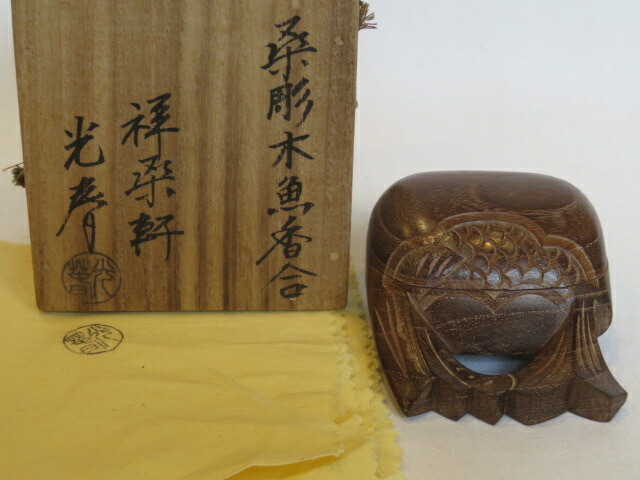 桑彫木魚香合
祥桑軒
光春